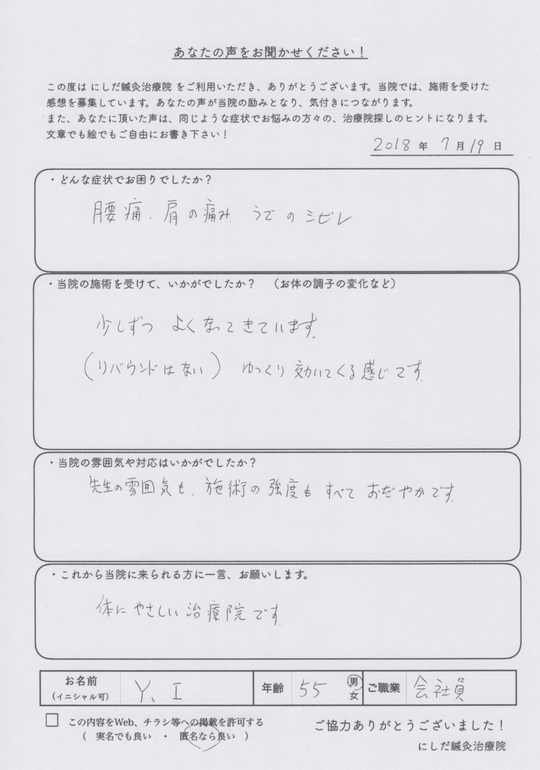 あなたの声をお聞かせください！
この度は にしだ鍼灸治療院 をご利用いただき、ありがとうございます。当院では、施術を受けた
感想を募集しています。あなたの声が当院の励みとなり、気付きにつながります。
また、あなたに頂いた声は、同じような症状でお悩みの方々の、治療院探しのヒントになります。
文章でも絵でもご自由にお書き下さい！
2018 年 7 月 19 日
・どんな症状でお困りでしたか？
腰痛、肩の痛み うでのシビレ
・当院の施術を受けて、いかがでしたか？ （お体の調子の変化など）
少しずつ よくなってきています。
（リバウンドはない） ゆっくり効いてくる感じです。
・当院の雰囲気や対応はいかがでしたか？
先生の雰囲気も、施術の強度も すべて おだやかです。
・これから当院に来られる方に一言、お願いします。
体にやさしい治療院です
お名前 （イニシャル可） Y、I 年齢 55 男 女 ご職業 会社員
□ この内容をWeb、チラシ等への掲載を許可する
（ 実名でも良い ・ 匿名なら良い ）
ご協力ありがとうございました！
にしだ鍼灸治療院